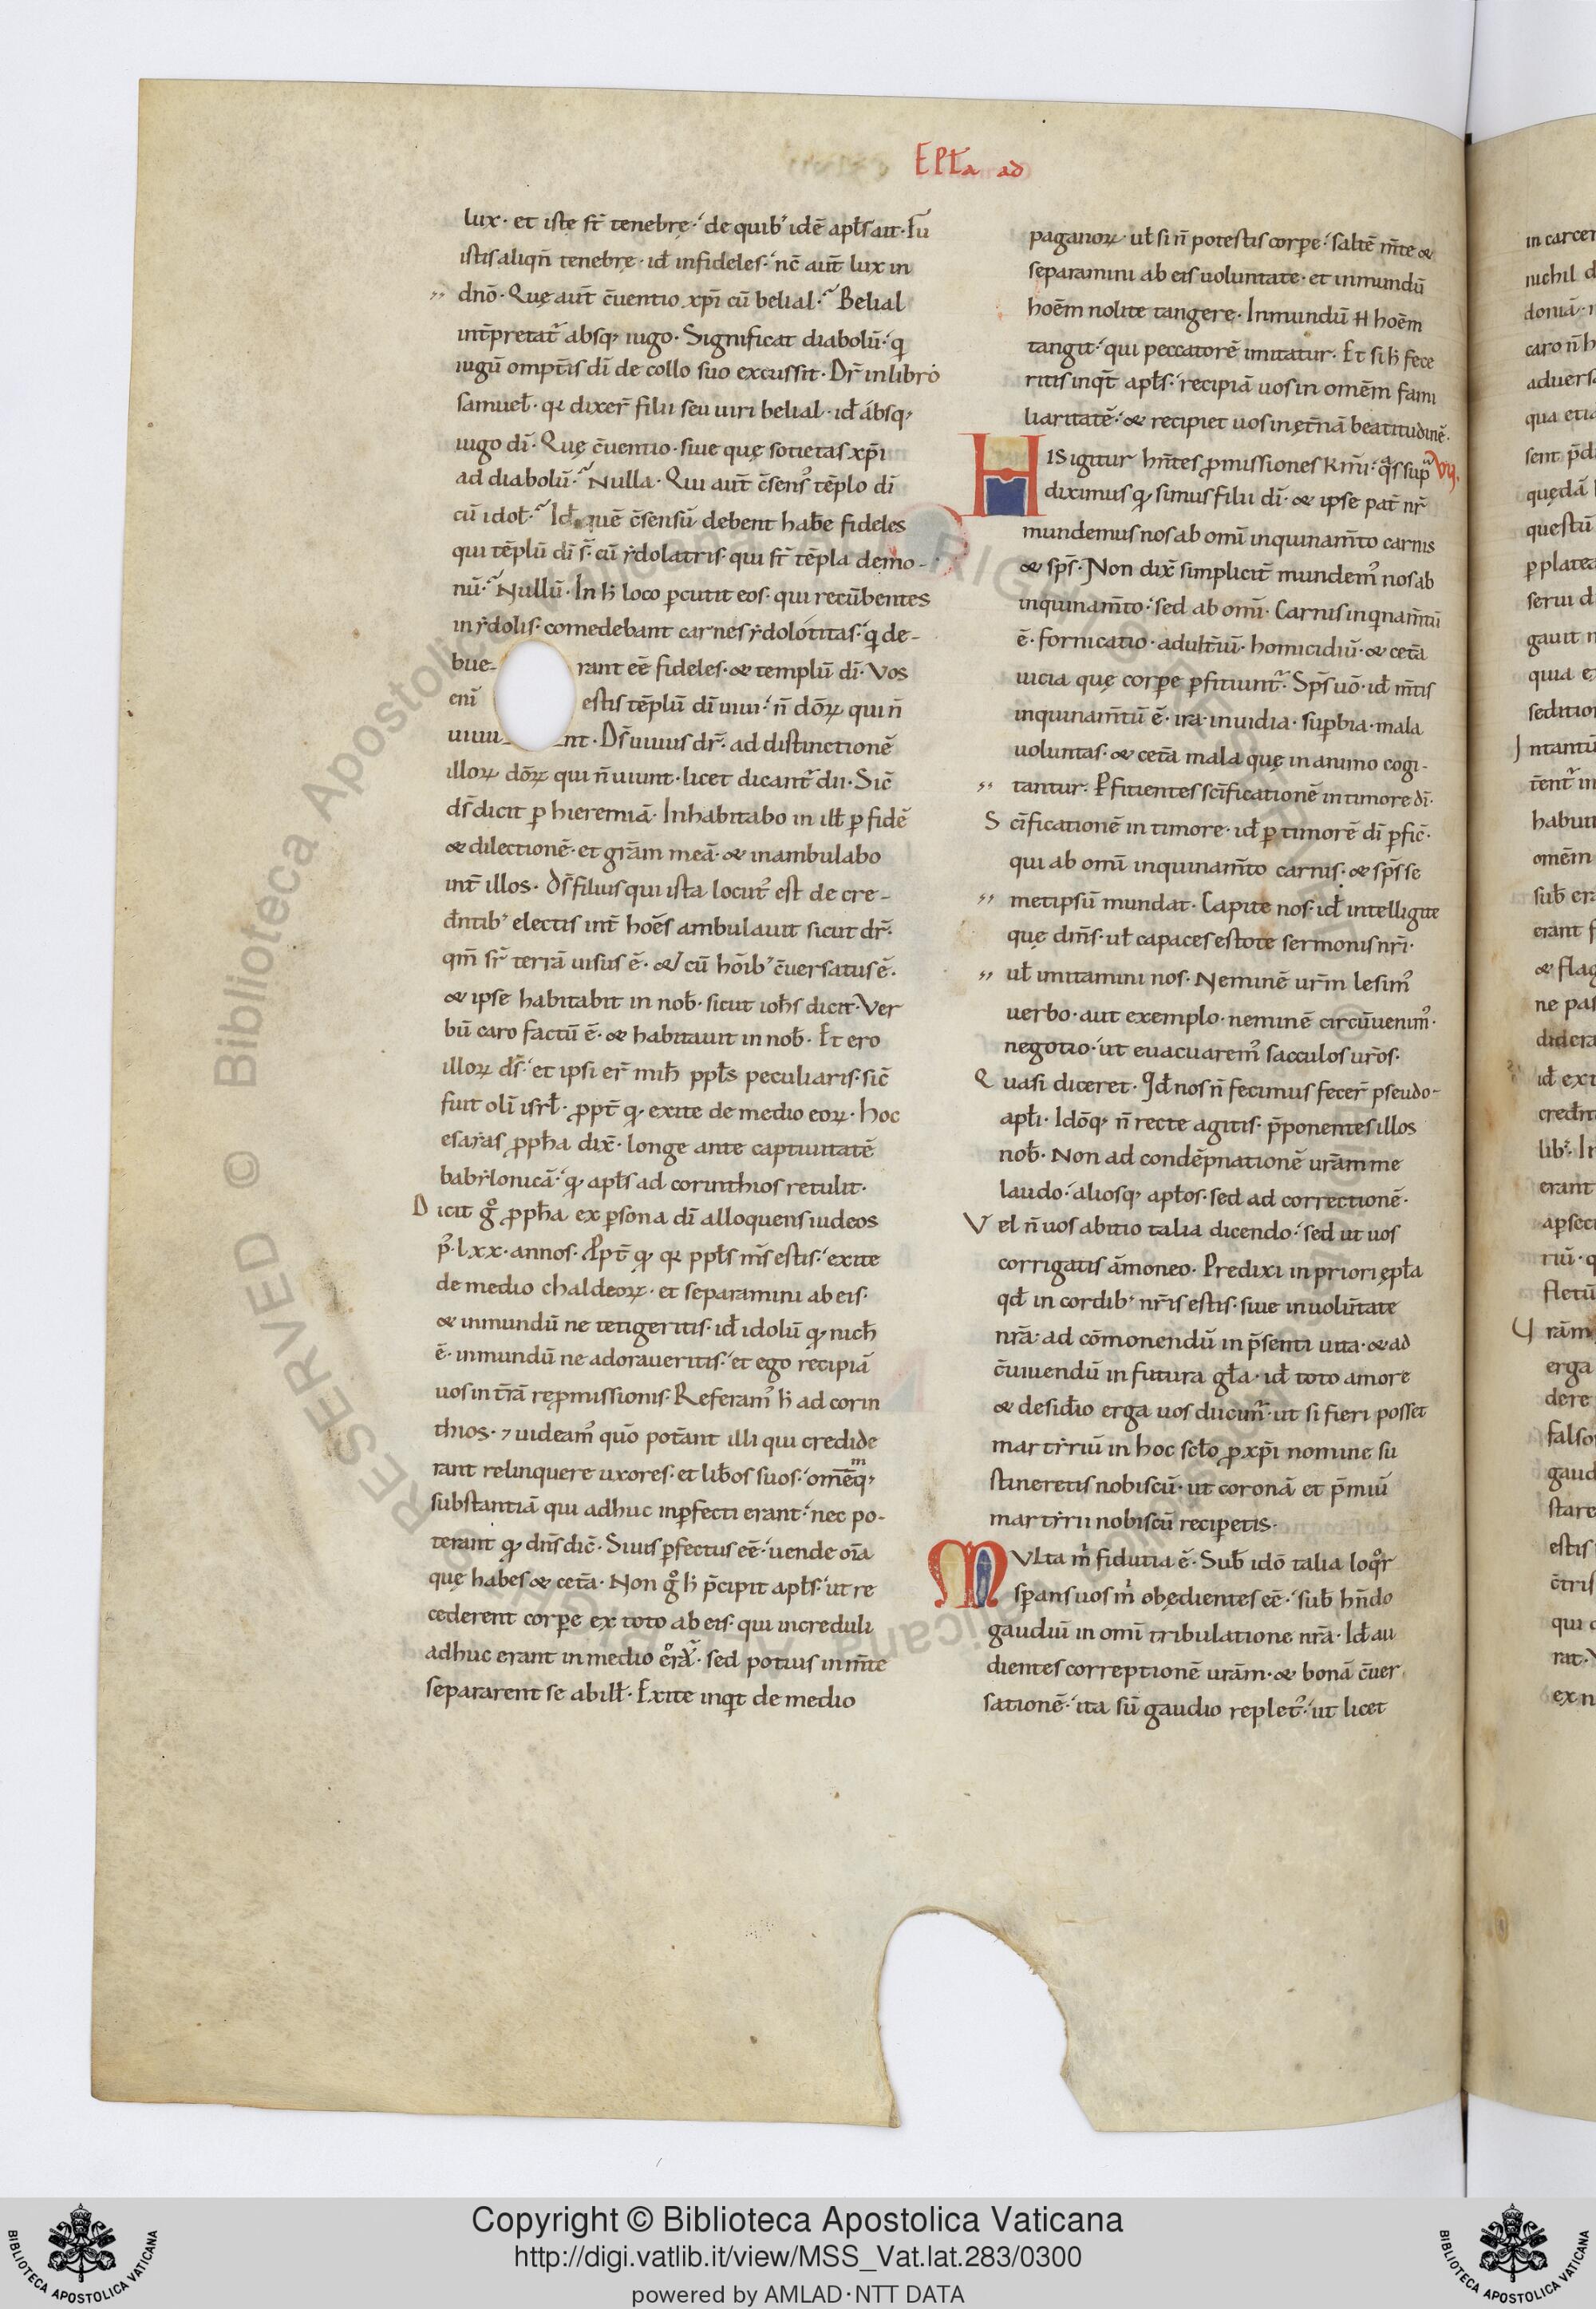 EPŁa ad
lux· et iste st̄ tenebrę· de quib' idē apl̄s ait· Fu
istis aliqn̄ tenebrę· id̄ infideles· nc̄ aut̄ lux in
dn̄o· Quę aut̄ c̄uentio xp̄i cū belial· Belial
int̄pretat' absq; iugo· Significat diabolū· q
iugū omp̄tis dī de collo suo excussit· Dr̄ in libro
samuel̄· qr dixer̄ filii seu uiri belial· id̄ absq;
iugo dī· Quę c̄uentio· siue quę societas xp̄i
ad diabolū· Nulla· Qui aut̄ c̄sens' tēplo dī
cū idol̄· Id̄ quē c̄sensū debent hab̄e fideles
qui tēplū dī s̄· cū ẏdolatris· qui st̄ tēpla demo-
nū· Nullū· In h̄ loco p̱cutit eos· qui recūbentes
in ẏdolis· comedebant carnes ẏdolotitas· q de-
bue- rant eē fideles· & templū dī· Vos
enī estis tēplū dī uiui· n̄ dōꝝ qui n̄
uiuu- ent· Ds̄ uiuus dr̄· ad distinctionē
illoꝝ dōꝝ qui n̄ uiunt· licet dicant' dii· Sic̄
ds̄ dicit ꝑ hieremiā· Inhabitabo in ill̄ ꝑ fidē
& dilectionē· et gr̄am meā· & inambulabo
int̄ illos· Ds̄ filius qui ista locut' est de cre-
d̄ntib' electis int̄ hoēs ambulauit sicut dr̄·
qm̄ sr̄ terrā uisus ē· & cū hōib' c̄uersatus ē·
& ipse habitabit in nob̄· sicut ioh̄s dicit· Ver
bū caro factū ē· & habitauit in nob̄· Et ero
illoꝝ ds̄· et ipsi er̄ mih̄ ppl̄s peculiaris· sic̄
fuit olī isrl̄· ꝓpt̄ q· exite de medio eoꝝ· hoc
esaẏas ꝓph̄a dix̄· longe ante captiuitatē
babẏlonicā· q· apl̄s ad corinthios retulit·
Dicit g° ꝓph̄a ex ꝑsona dī alloquens iudeos
p'· lxx· annos· Ꝓpt̄ q· qr ppl̄s m̄s estis· exite
de medio chaldeoꝝ· et separamini ab eis·
& inmundū ne tetigeritis· id̄ idolū q· nich̄
ē· inmundū ne adoraueritis· et ego recipiā
uos in t̄rā reꝓmissionis· Referam' h̄ ad corin
thios· ⁊ uideam' quō pot̄ant illi qui credide
rant relinquere uxores· et lib̄os suos· omēq;
substantiā qui adhuc inꝑfecti erant· nec po-
terant q· dn̄s dic̄· Si uis ꝑfectus eē· uende oīa
quę habes & cet̄a· Non g° h̄ p̄cipit apl̄s· ut re
cederent corꝑe ex toto ab eis· qui increduli
adhuc erant in medio eoꝝ· sed potius in m̄te
separarent se ab ill̄· Exite inqt̄ de medio
paganoꝝ· ul̄ si n̄ potestis corꝑe· saltē m̄te &
separamini ab eis uoluntate· et inmundū
hoēm nolite tangere· Inmundū H hoēm
tangit· qui peccatorē imitatur· Et si h̄ fece
ritis inqt̄ apl̄s· recipiā uos in omēm fami
liaritatē· & recipiet uos in ęt̄nā beatitudinē·
HIS igitur hn̄tes ꝓmissiones km̄i· qs sup̄ VII.
diximus q· simus filii dī· & ipse pat̄ nr̄
mundemus nos ab omī inquinam̄to carnis
& sp̄s· Non dix̄ simplicit̄ mundem' nos ab
inquinam̄to· sed ab omī· Carnis inqnam̄tū
ē· fornicatio· adult̄iū· homicidiū· & cet̄a
uicia quę corꝑe ꝑfitiunt'· Sp̄s uō· id̄ m̄tis
inquinam̄tū ē· ira· inuidia· suꝑbia· mala
uoluntas· & cet̄a mala quę in animo cogi-
tantur· Ꝑfitientes sc̄ificationē in timore dī·
Sc̄ificationē in timore· id̄ ꝑ timorē dī ꝑfic̄·
qui ab omī inquinam̄to carnis· & sp̄s se
metipsū mundat· Capite nos· id̄ intelligite
quę dm̄s· ul̄ capaces estote sermonis nr̄i·
ul̄ imitamini nos· Neminē ur̄m lesim'
uerbo· aut exemplo· neminē circūuenim'·
negotio· ut euacuarem' sacculos ur̄os·
Quasi diceret· Id̄ nos n̄ fecimus fecer̄ pseudo-
apl̄i· Idōq; n̄ recte agitis· p̄ponentes illos
nob̄· Non ad condēpnationē ur̄am me
laudo· aliosq; apl̄os· sed ad correctionē·
Vel n̄ uos abitio talia dicendo· sed ut uos
corrigatis āmoneo· Predixi in priori ępl̄a
qd̄ in cordib' nr̄is estis· siue in uolūtate
nr̄a· ad cōmonendū in p̄senti uita· & ad
c̄uiuendū in futura gl̄a· id̄ toto amore
& desid̄io erga uos ducim'· ut si fieri posset
martẏriū in hoc scl̄o ꝓ xp̄i nomine su
stineretis nobiscū· ut coronā et p̄miū
martẏrii nobiscū reciꝑetis·
MVlta m̄ fidutia ē· Sub̄ idō talia loq°r
sꝑans uos m̄ obędientes eē· sub̄ hn̄do
gaudiū in omī tribulatione nr̄a· Id̄ au
dientes correptionē ur̄am· & bonā c̄uer
sationē· ita sū gaudio replet'· ut licet
Copyright © Biblioteca Apostolica Vaticana
http://digi.vatlib.it/view/MSS_Vat.lat.283/0300
powered by AMLAD·NTT DATA